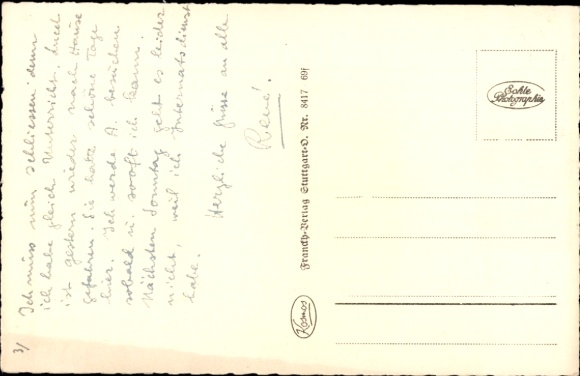 Ich muss nun schliessen denn
ich habe gleich Unterricht. Luch
ist gestern wieder nach Hause
gefahren. Sie hatte schöne Tage
hier. Ich werde A. besuchen
sobald u. sooft ich kann.
Nächsten Sonntag geht es leider
nicht, weil ich Internatsdienst
habe.
Herzliche Grüsse an alle
René.
3/
Franckh-Verlag Stuttgart-O. Nr. 8417 69f
Kosmos
Echte
Photographie